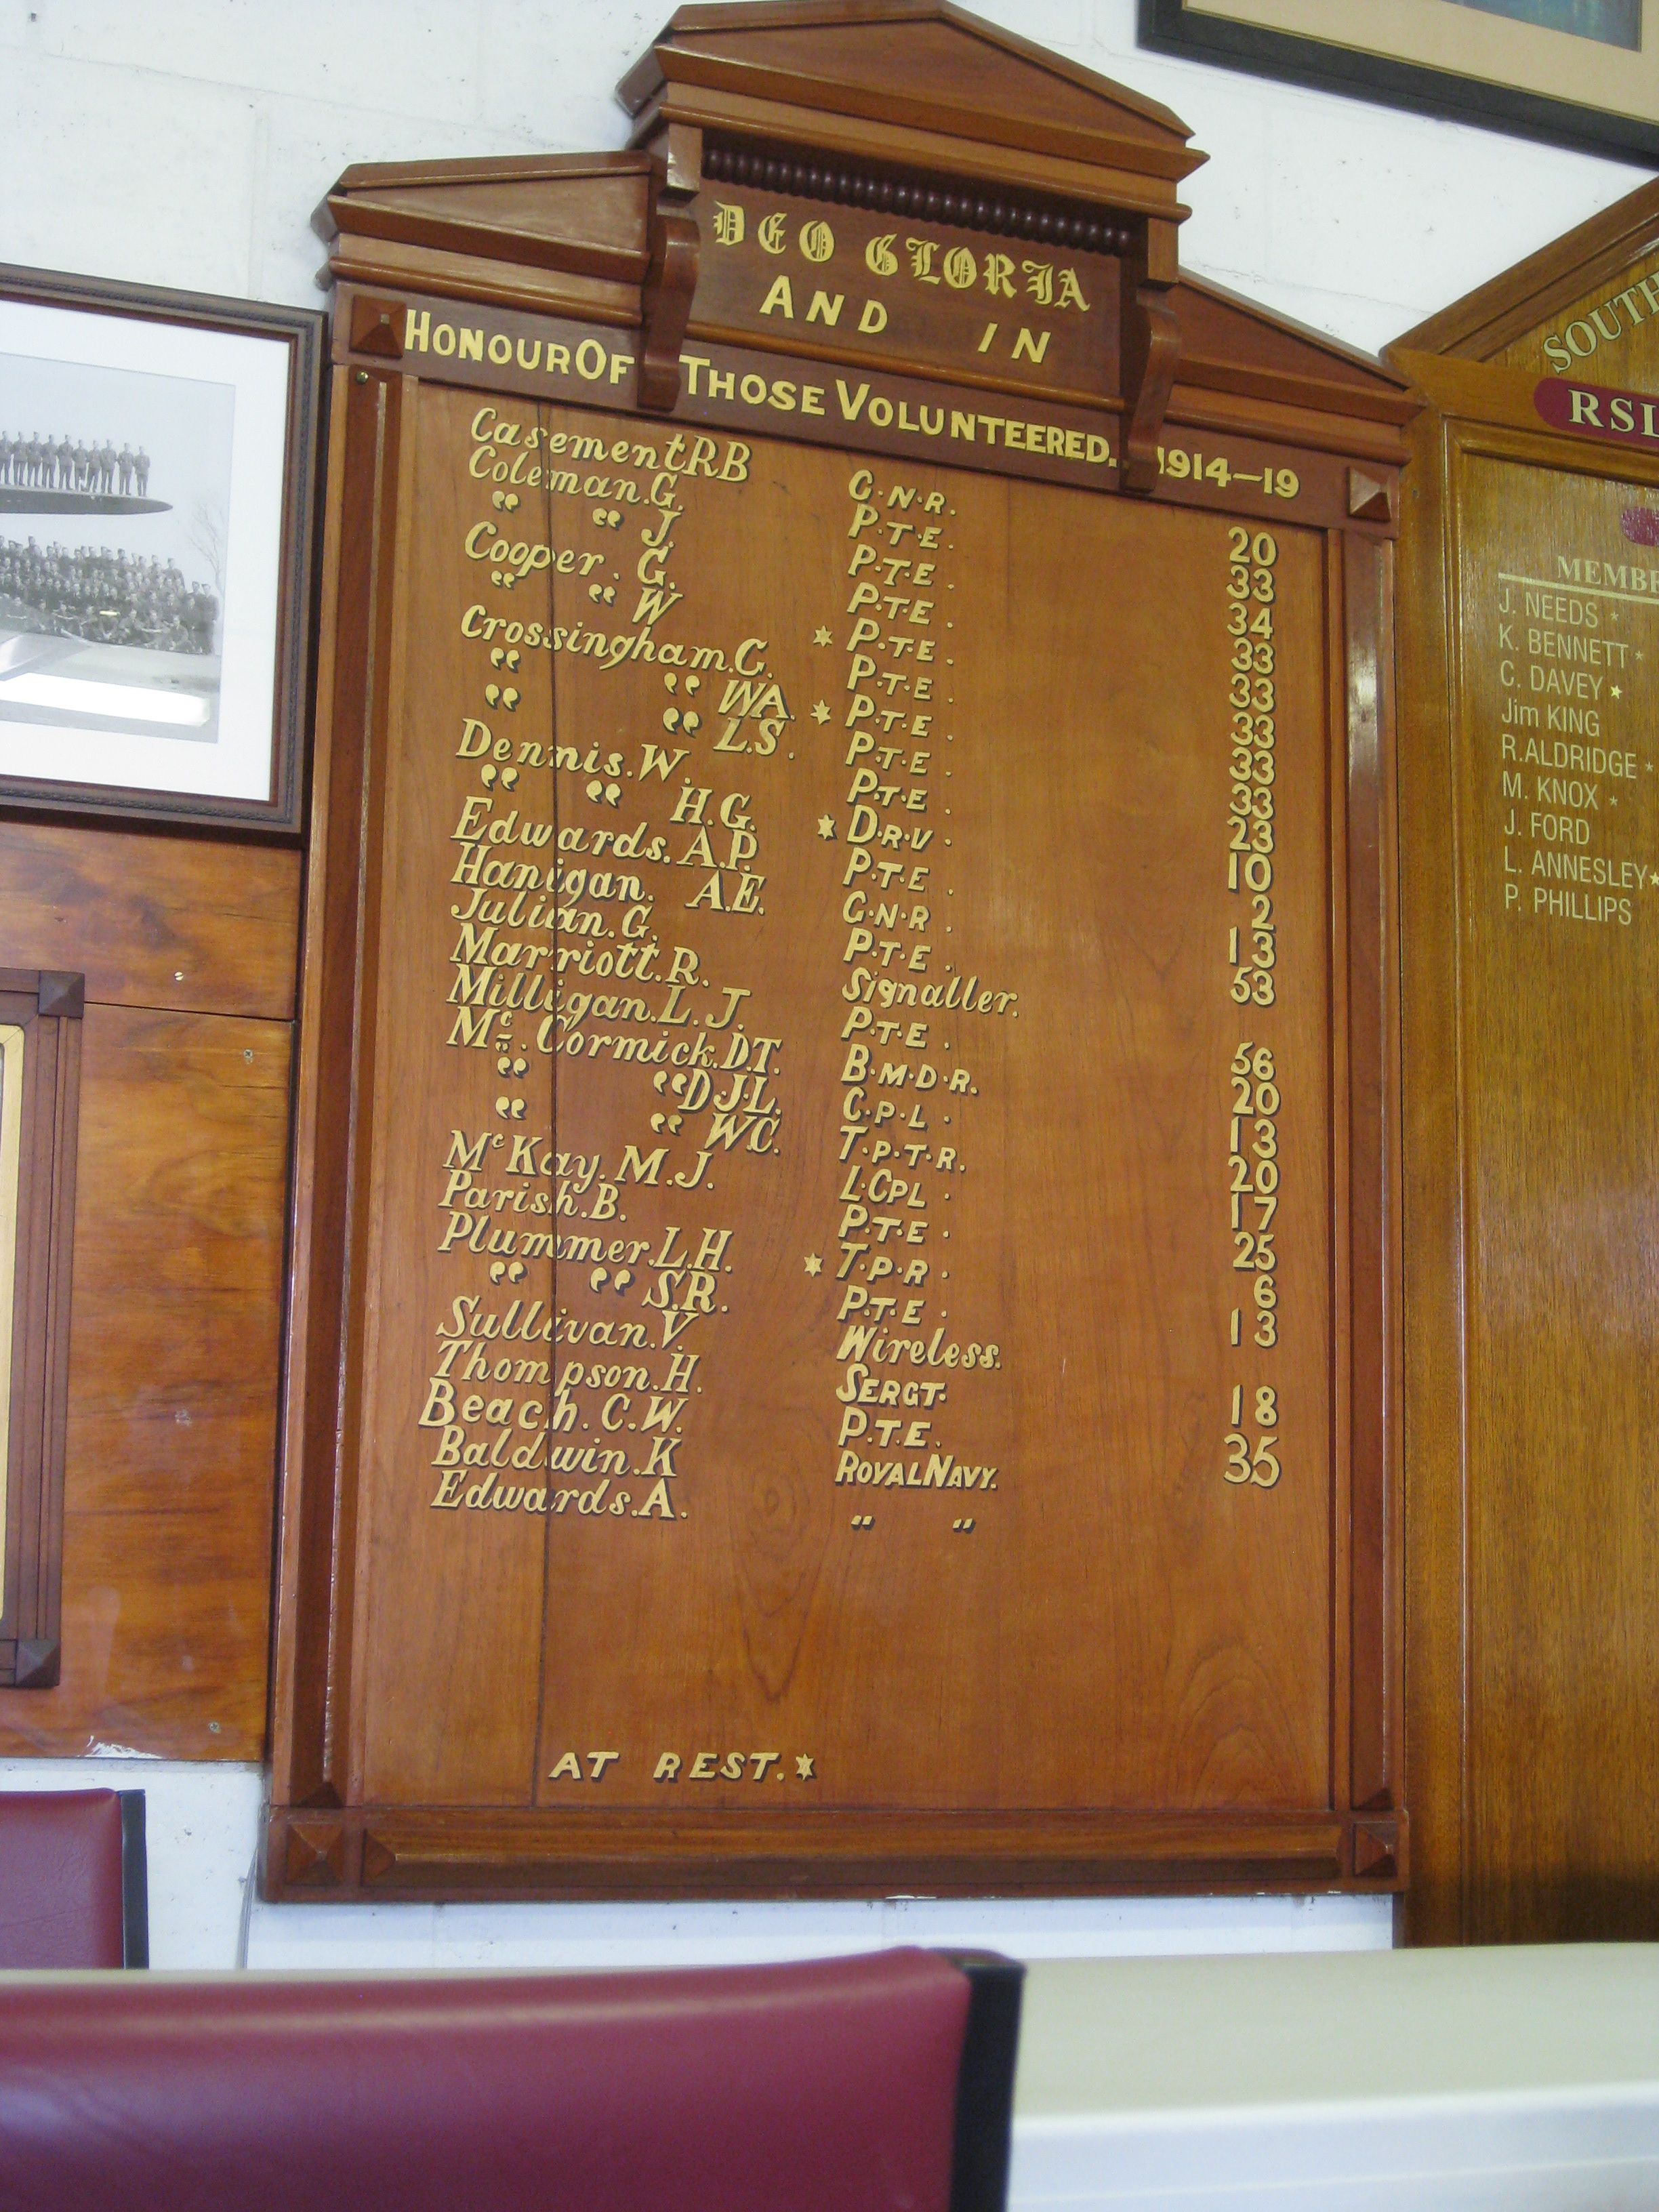 DEO GLORIA
AND IN
HONOUR OF THOSE VOLUNTEERED. 1914—19
Casement R B G.N.R. 20
Coleman. G. P.T.E. 33
" " J. P.T.E. 34
Cooper. G. P.T.E. 33
" " W * P.T.E. 33
Crossingham. C. P.T.E. 33
" " WA. * P.T.E. 33
" " L.S. P.T.E. 33
Dennis. W. P.T.E. 23
" " H.G. * D.R.V. 10
Edwards. A.P. P.T.E. 2
Hanigan. A.E. G.N.R. 13
Julian. G. P.T.E. 53
Marriott. R. Signaller.
Milligan. L. J. P.T.E. 56
Mc. Cormick. D.T. B.M.D.R. 20
" " D.J.L. C.P.L. 13
" " WC. T.P.T.R. 20
McKay. M.J. L.CPL. 17
Parish. B. P.T.E. 25
Plummer. L.H. * T.P.R. 6
" " S.R. P.T.E. 13
Sullivan. V. Wireless.
Thompson. H. SERGT. 18
Beach. C.W. P.T.E. 35
Baldwin. K ROYAL NAVY.
Edwards. A. " "
AT REST. *
RSL
J. NEEDS *
K. BENNETT *
C. DAVEY *
Jim KING
R.ALDRIDGE *
M. KNOX *
J. FORD
L. ANNESLEY *
P. PHILLIPS